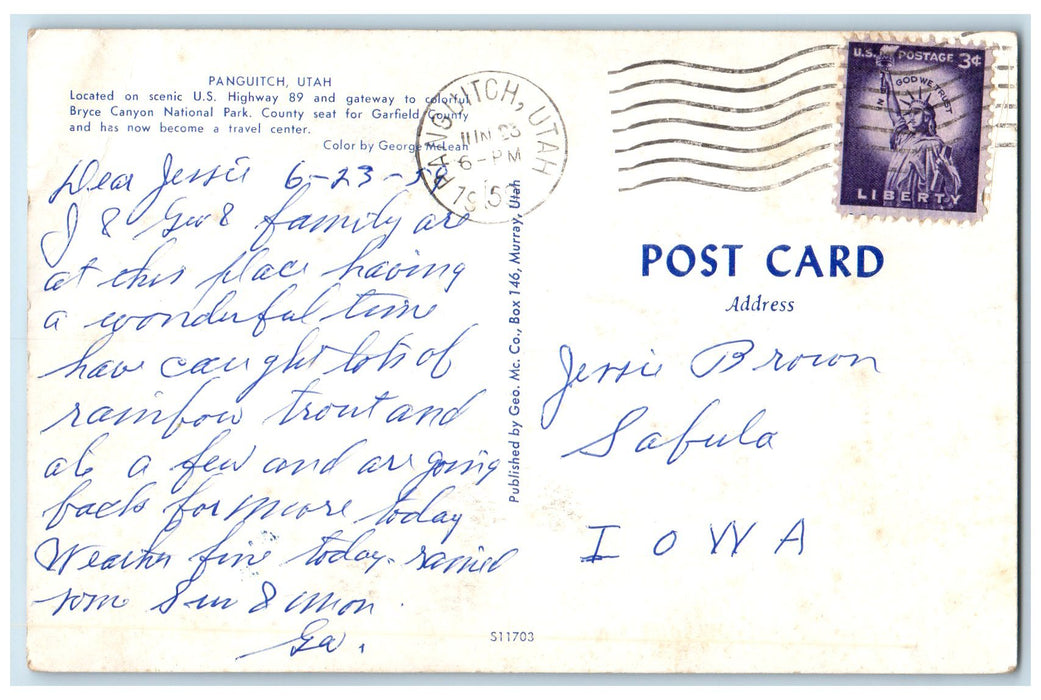 PANGUITCH, UTAH
Located on scenic U.S. Highway 89 and gateway to colorful
Bryce Canyon National Park. County seat for Garfield County
and has now become a travel center.
Color by George McLean
Dear Jessie 6-23-58
I & Geo & family are
at this place having
a wonderful time
have caught lots of
rainbow trout and
a few and are going
back for more today
Weather fine today - rained
some Sun & Mon.
Ga.
PANGUITCH, UTAH
JUN 23
6-PM
195
Published by Geo. Mc. Co., Box 146, Murray, Utah
S11703
U.S. POSTAGE 3¢
IN GOD WE TRUST
LIBERTY
POST CARD
Address
Jessie Brown
Sabula
IOWA